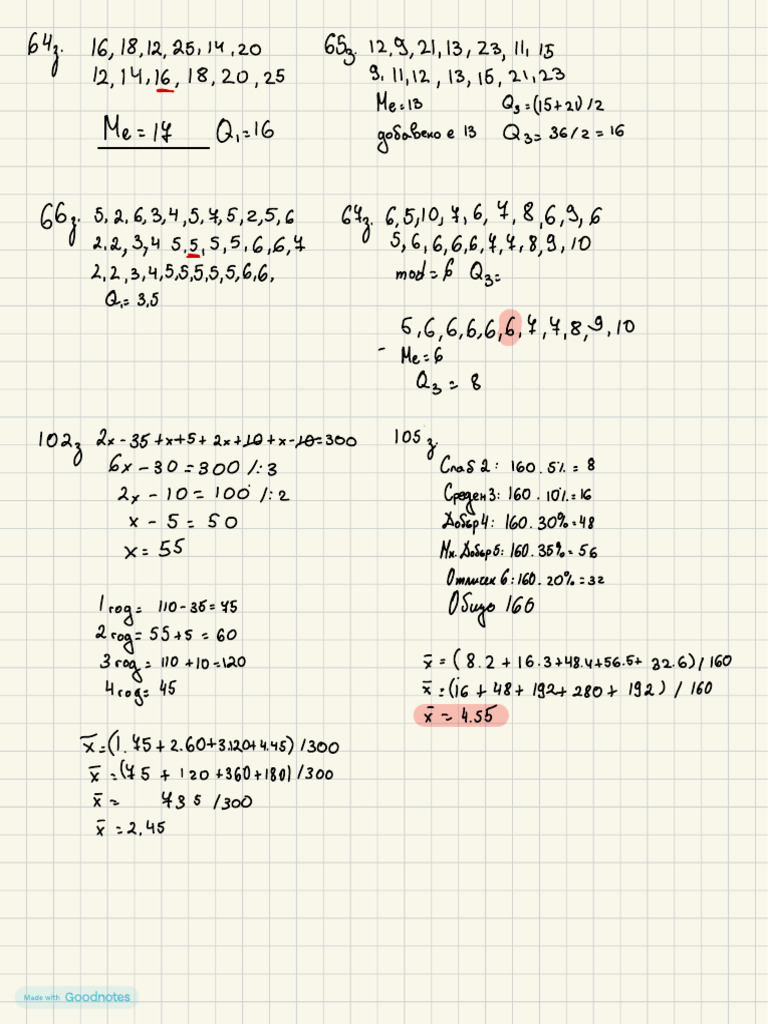 64з. 16, 18, 12, 25, 14, 20
12, 14, 16, 18, 20, 25
Me = 17 Q₁ = 16
65з. 12, 9, 21, 13, 23, 11, 15
9, 11, 12, 13, 15, 21, 23
Me = 13 Q₃ = (15+21)/2
добавено е 13 Q₃ = 36/2 = 16
66з. 5, 2, 6, 3, 4, 5, 7, 5, 2, 5, 6
2, 2, 3, 4 5, 5, 5, 5, 6, 6, 7
2, 2, 3, 4, 5, 5, 5, 5, 5, 6, 6,
Q₁ = 3,5
67з. 6, 5, 10, 7, 6, 7, 8, 6, 9, 6
5, 6, 6, 6, 6, 7, 7, 8, 9, 10
mod = 6 Q₃ =
5, 6, 6, 6, 6, 6, 7, 7, 8, 9, 10
- Me = 6
Q₃ = 8
102з 2x - 35 + x + 5 + 2x + 10 + x - 10 = 300
6x - 30 = 300 /:3
2x - 10 = 100 /:2
x - 5 = 50
x = 55
1 год = 110 - 35 = 75
2 год = 55 + 5 = 60
3 год = 110 + 10 = 120
4 год = 45
x̄ = (1.75 + 2.60 + 3.120 + 4.45) / 300
x̄ = (75 + 120 + 360 + 180) / 300
x̄ = 735 / 300
x̄ = 2,45
105з.
Слаб 2: 160 . 5% = 8
Среден 3: 160 . 10% = 16
Добър 4: 160 . 30% = 48
Мн. Добър 5: 160. 35% = 56
Отличен 6: 160. 20% = 32
Общо 160
x̄ = (8.2 + 16.3 + 48.4 + 56.5 + 32.6) / 160
x̄ = (16 + 48 + 192 + 280 + 192) / 160
x̄ = 4.55
Made with Goodnotes